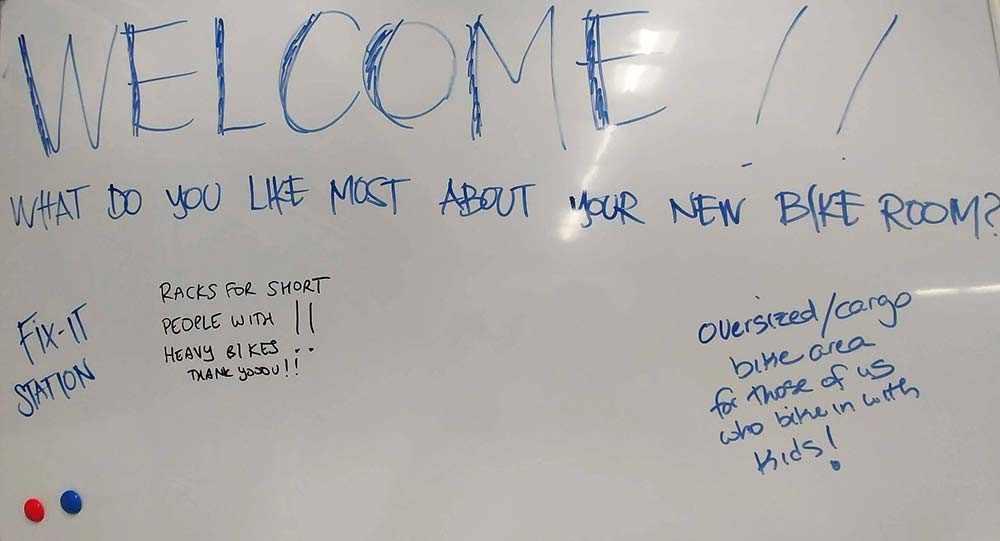 WELCOME !!
WHAT DO YOU LIKE MOST ABOUT YOUR NEW BIKE ROOM?
FIX-IT
STATION
RACKS FOR SHORT
PEOPLE WITH
HEAVY BIKES !!
THANK YOOOU!!
oversized/cargo
bike area
for those of us
who bike in with
kids!